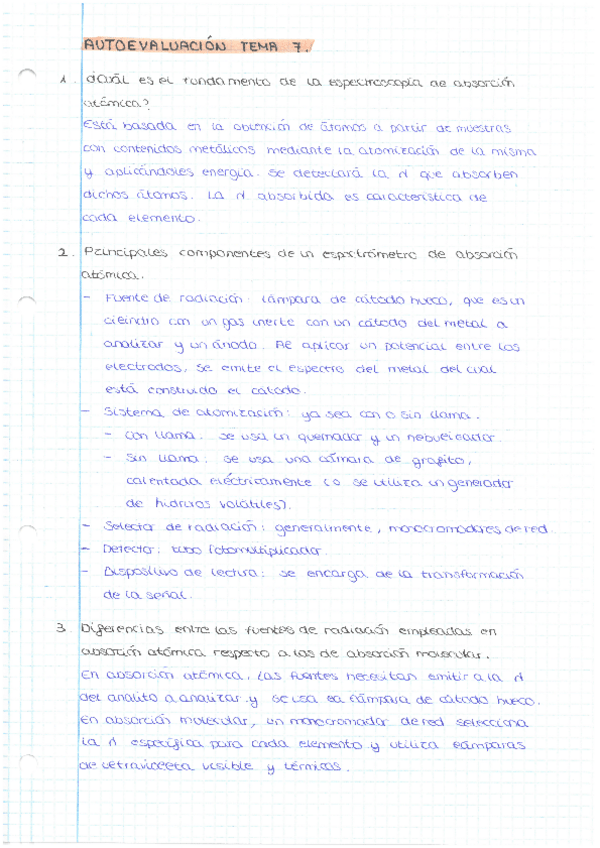 AUTOEVALUACIÓN TEMA 7.
1. ¿Cuál es el fundamento de la espectroscopía de absorción
atómica?
Está basada en la obtención de átomos a partir de muestras
con contenidos metálicos mediante la atomización de la misma
y aplicándoles energía. Se detectará la λ que absorben
dichos átomos. La λ absorbida es característica de
cada elemento.
2. Principales componentes de un espectrómetro de absorción
atómica.
- Fuente de radiación: lámpara de cátodo hueco, que es un
cilindro con un gas inerte con un cátodo del metal a
analizar y un ánodo. Al aplicar un potencial entre los
electrodos, se emite el espectro del metal del cual
está construido el cátodo.
- Sistema de atomización: ya sea con o sin llama.
- Con llama: se usa un quemador y un nebulizador.
- Sin llama: se usa una cámara de grafito,
calentada eléctricamente (o se utiliza un generador
de hidruros volátiles).
- Selector de radiación: generalmente, monocromadores de red.
- Detector: tubo fotomultiplicador.
- Dispositivo de lectura: se encarga de la transformación
de la señal.
3. Diferencias entre las fuentes de radiación empleadas en
absorción atómica respecto a las de absorción molecular.
En absorción atómica, las fuentes necesitan emitir a la λ
del analito a analizar y se usa la lámpara de cátodo hueco.
En absorción molecular, un monocromador de red selecciona
la λ específica para cada elemento y utiliza lámparas
de ultravioleta visible y térmicas.